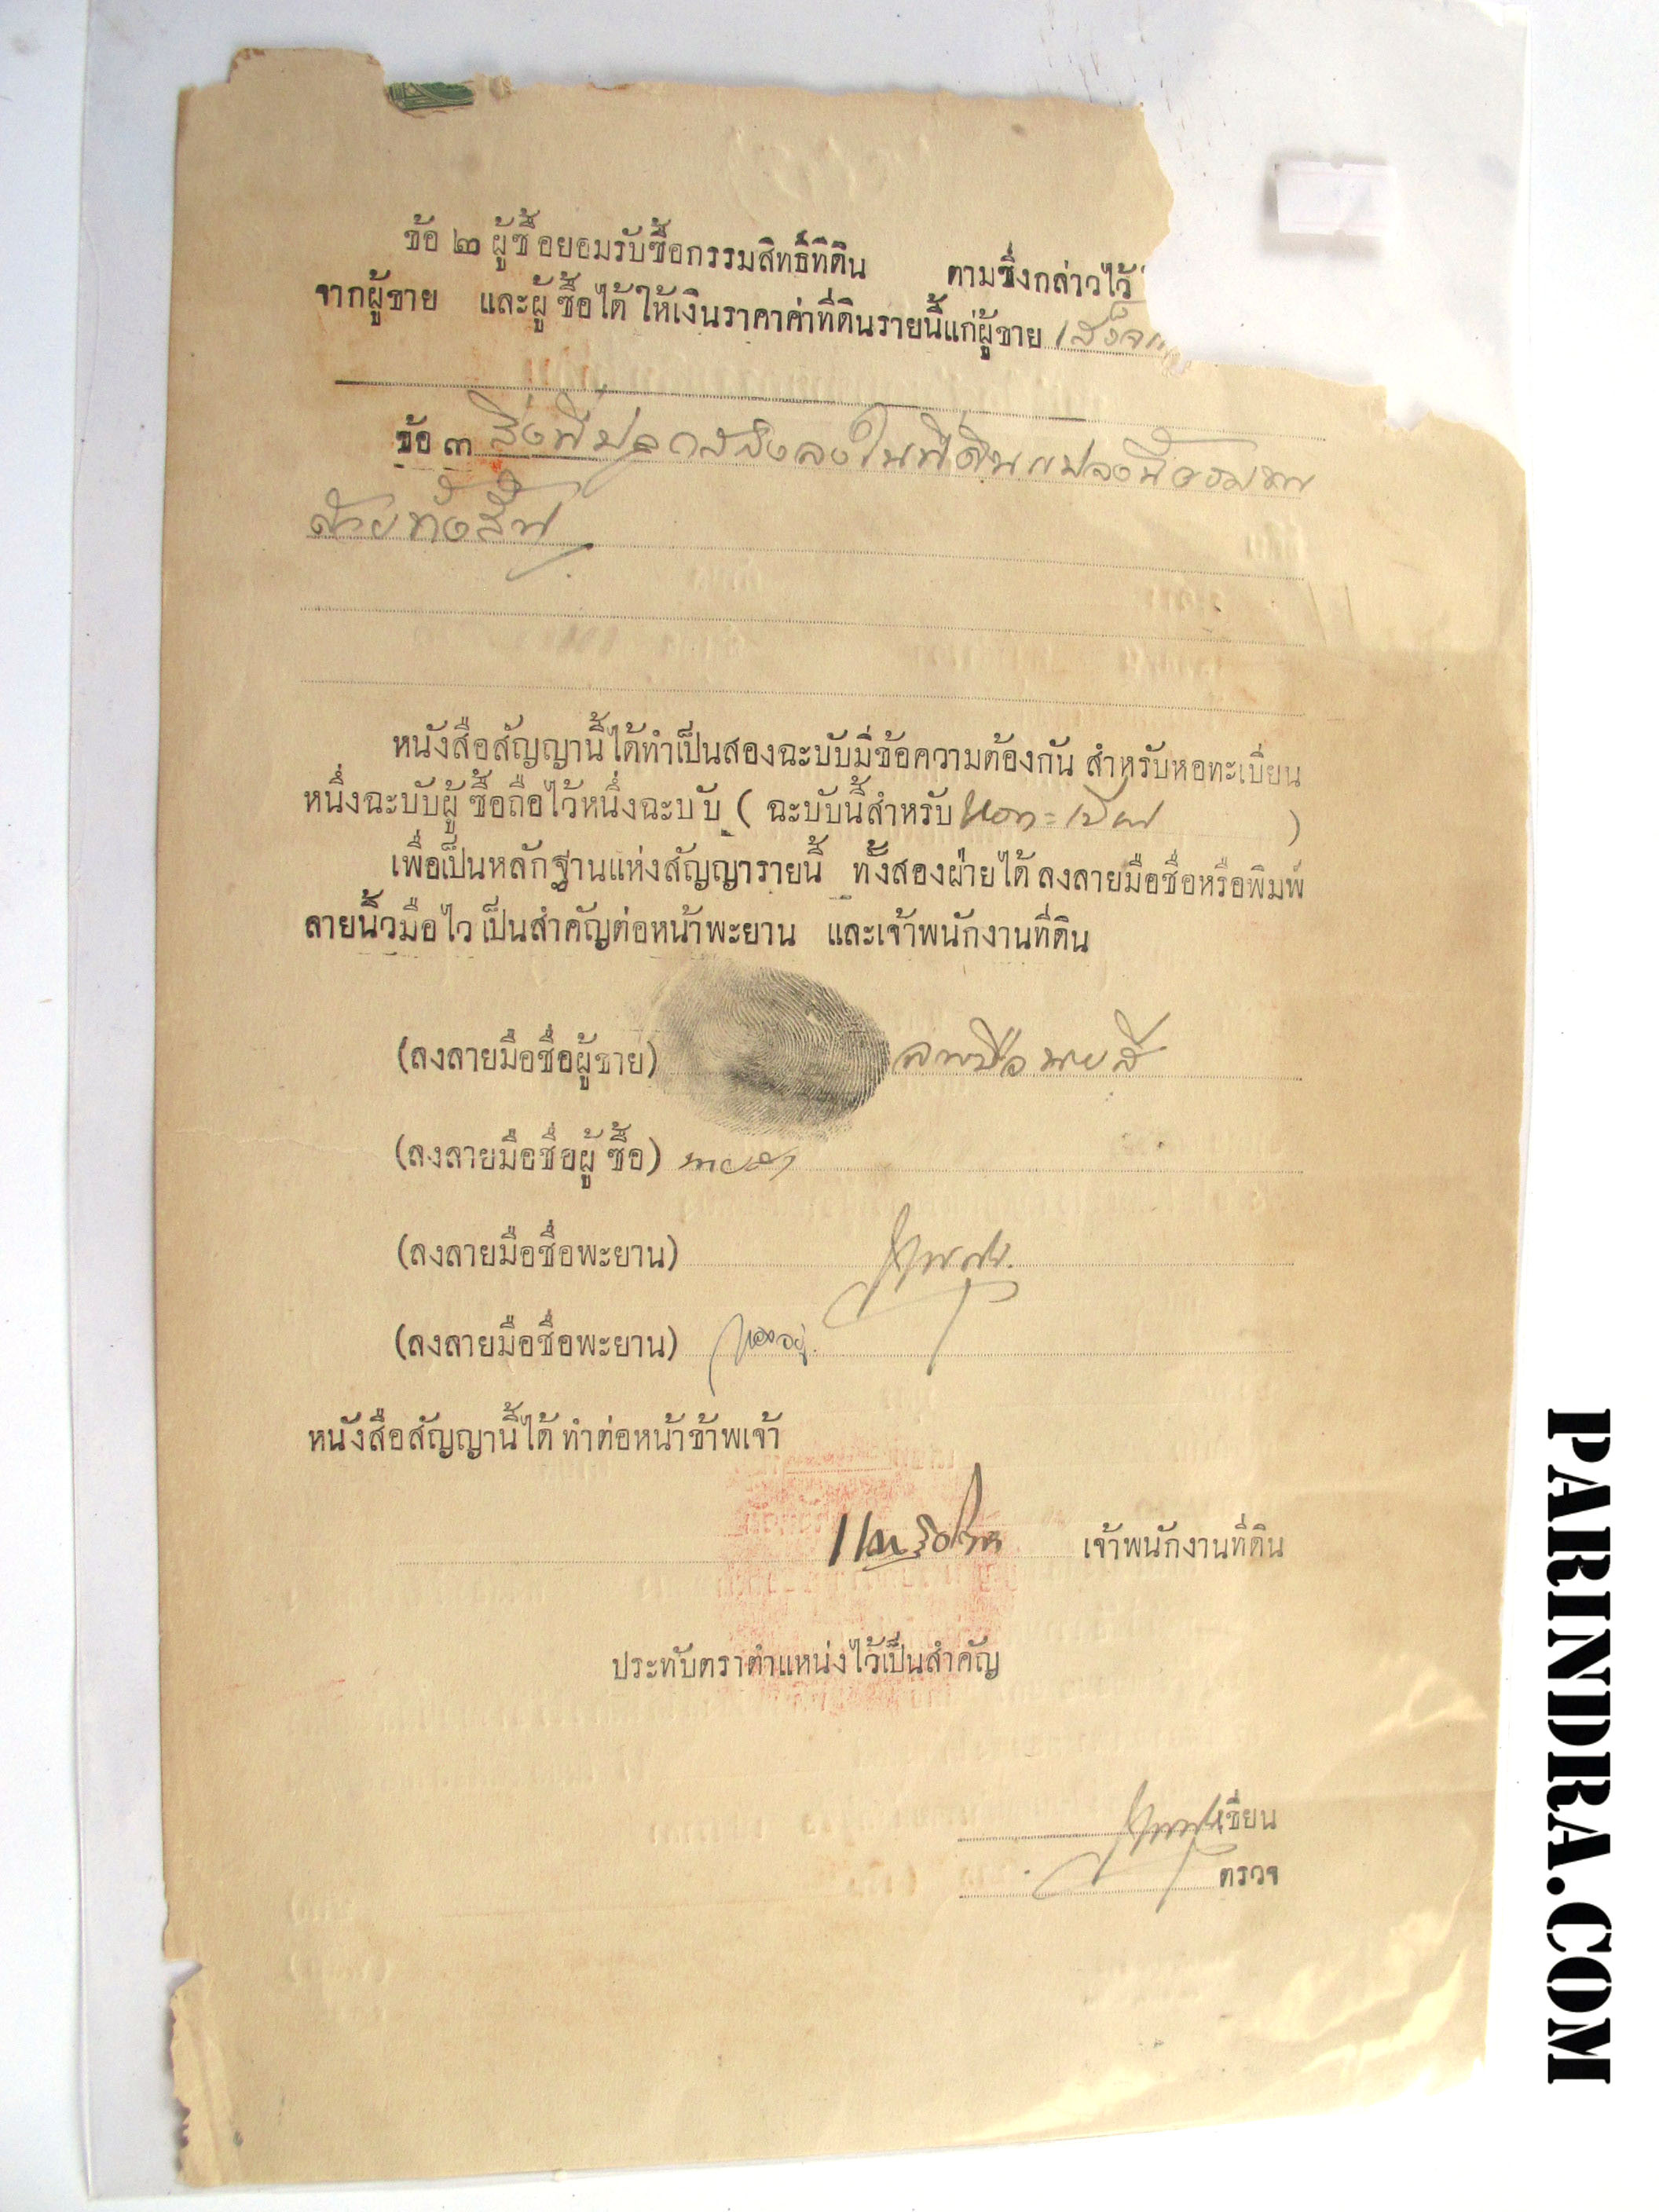 ข้อ ๒ ผู้ซื้อยอมรับซื้อกรรมสิทธิ์ที่ดิน ตามซึ่งกล่าวไว้
จากผู้ขาย และผู้ซื้อได้ให้เงินราคาค่าที่ดินรายนี้แก่ผู้ขาย เสร็จ
ข้อ ๓ สิ่งที่ปลูกสร้างลงในที่ดินแปลงนี้
ด้วยทั้งสิ้น
หนังสือสัญญานี้ได้ทำเป็นสองฉะบับมีข้อความต้องกัน สำหรับหอทะเบียน
หนึ่งฉะบับผู้ซื้อถือไว้หนึ่งฉะบับ ( ฉะบับนี้สำหรับหอทะเบียน )
เพื่อเป็นหลักฐานแห่งสัญญารายนี้ ทั้งสองฝ่ายได้ลงลายมือชื่อหรือพิมพ์
ลายนิ้วมือไว้เป็นสำคัญต่อหน้าพะยาน และเจ้าพนักงานที่ดิน
(ลงลายมือชื่อผู้ขาย)
(ลงลายมือชื่อผู้ซื้อ)
(ลงลายมือชื่อพะยาน)
(ลงลายมือชื่อพะยาน) ทองอยู่
หนังสือสัญญานี้ได้ทำต่อหน้าข้าพเจ้า
เจ้าพนักงานที่ดิน
ประทับตราตำแหน่งไว้เป็นสำคัญ
เขียน
ตรวจ
PARINDRA.COM